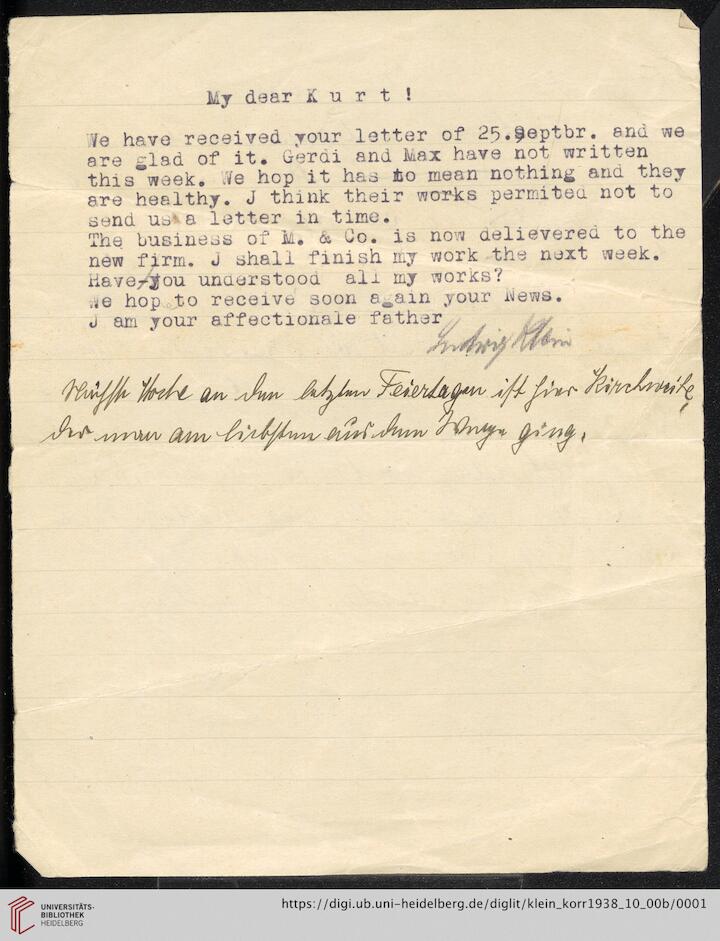 My dear K u r t !
We have received your letter of 25.Septbr. and we
are glad of it. Gerdi and Max have not written
this week. We hop it has to mean nothing and they
are healthy. J think their works permited not to
send us a letter in time.
The business of M. & Co. is now delievered to the
new firm. J shall finish my work the next week.
Have you understood all my works?
We hop to receive soon again your News.
J am your affectionale father
Ludwig Klein
Nächste Woche an den letzten Feiertagen ist hier Kirchweihe,
der man am liebsten aus dem Wege ging.
UNIVERSITÄTS-
BIBLIOTHEK
HEIDELBERG
https://digi.ub.uni-heidelberg.de/diglit/klein_korr1938_10_00b/0001